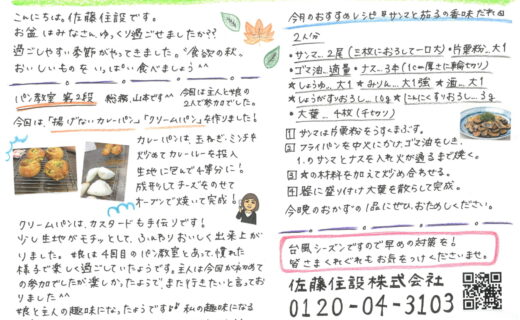 こんにちは。佐藤住設です。
お盆はみなさん、ゆっくり過ごせましたか??
過ごしやすい季節がやってきました。"食欲の秋"
おいしいものをいっぱい食べましょう^^
パン教室 第2段 総務、山本です^^ 今回は主人と娘の
2人で参加でした。
今回は、「揚げないカレーパン」「クリームパン」を作りました!
カレーパンは、玉ねぎ・ミンチを
炒めてカレールーを投入
生地に包んで4等分に!
成形してチーズをのせて
オーブンで焼いて完成!
クリームパンは、カスタードも手伝りです!
少し生地がモチッとして、ふんわりおいしく出来上が
りました。娘は4回目のパン教室とあって、慣れた
様子で楽しく過ごしていたようです。主人は今回が初めて
の参加でしたが楽しかったようで、また行きたいと言ってお
りました^^
娘と主人の趣味になったようです 私の趣味になる
今月のおすすめレシピ サンマと茄子の香味だれ
2人分
・サンマ…2尾(三枚におろして一口大)・片栗粉…大1
・ゴマ油…適量・ナス…3本(1cm厚さに輪切り)
★しょうゆ…大1 ★みりん…大1強 ★酒…大1
★しょうがすりおろし…10g ★にんにくすりおろし…3g
・大葉…4枚(千切り)
1 サンマは片栗粉をうすくまぶす。
2 フライパンを中火にかけ、ゴマ油をしき、
1.のサンマとナスを入れ火が通るまで焼く。
3 ★の材料を加えて炒め合わせる。
4 器に盛り付け大葉を散らして完成。
今晩のおかずの1品にぜひ、おためしください。
台風シーズンですので早めの対策を!
皆さまくれぐれもお気をつけくださいませ。
佐藤住設株式会社
0120-04-3103